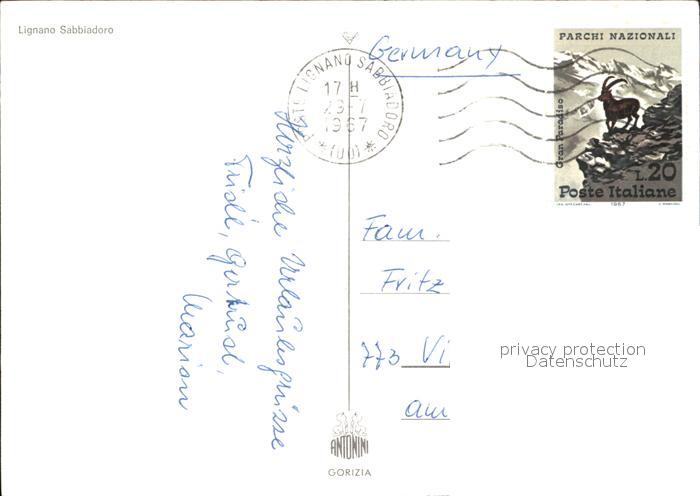 Lignano Sabbiadoro
Germany
LIGNANO SABBIADORO
17 H
29-7
1967
(UD)
PARCHI NAZIONALI
Gran Paradiso
L.20
Poste Italiane
1967
Herzliche Urlaubsgrüsse
Fridl, Gertrud,
Marion
Fam.
Fritz
773 Vi
am
privacy protection
Datenschutz
ANTONINI
GORIZIA